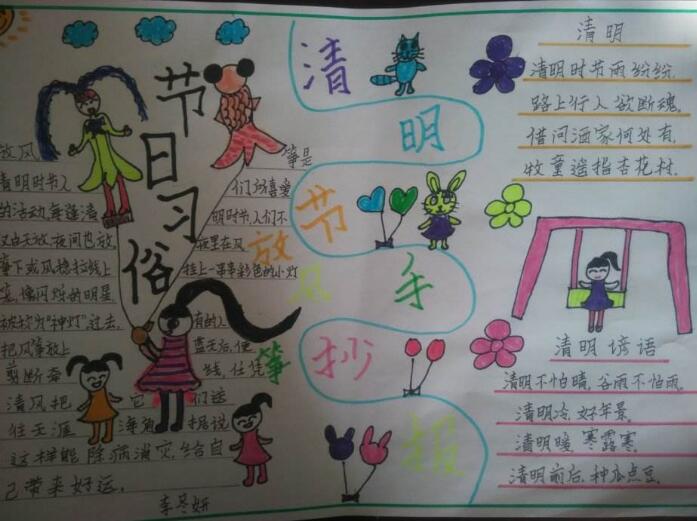 节日习俗
放风 筝是
清明时节人 们所喜爱
的活动,每逢清 明时节,人们不
仅白天放,夜间也放。 夜里在风
筝下或风稳拉线上 挂上一串串彩色的小灯
笼,像闪烁的明星,
被称为“神灯”。过去,
有的人
把风筝放上 蓝天后,便
剪断牵 线,任凭
清风把 它 们送
往天涯 海角,据说
这样能除病消灾,给自
己带来好运。
李冬妍
放风筝
清明节手抄报
清明
清明时节雨纷纷,
路上行人欲断魂,
借问酒家何处有,
牧童遥指杏花村。
清明谚语
清明不怕晴,谷雨不怕雨,
清明冷,好年景,
清明暖,寒露寒,
清明前后,种瓜点豆.